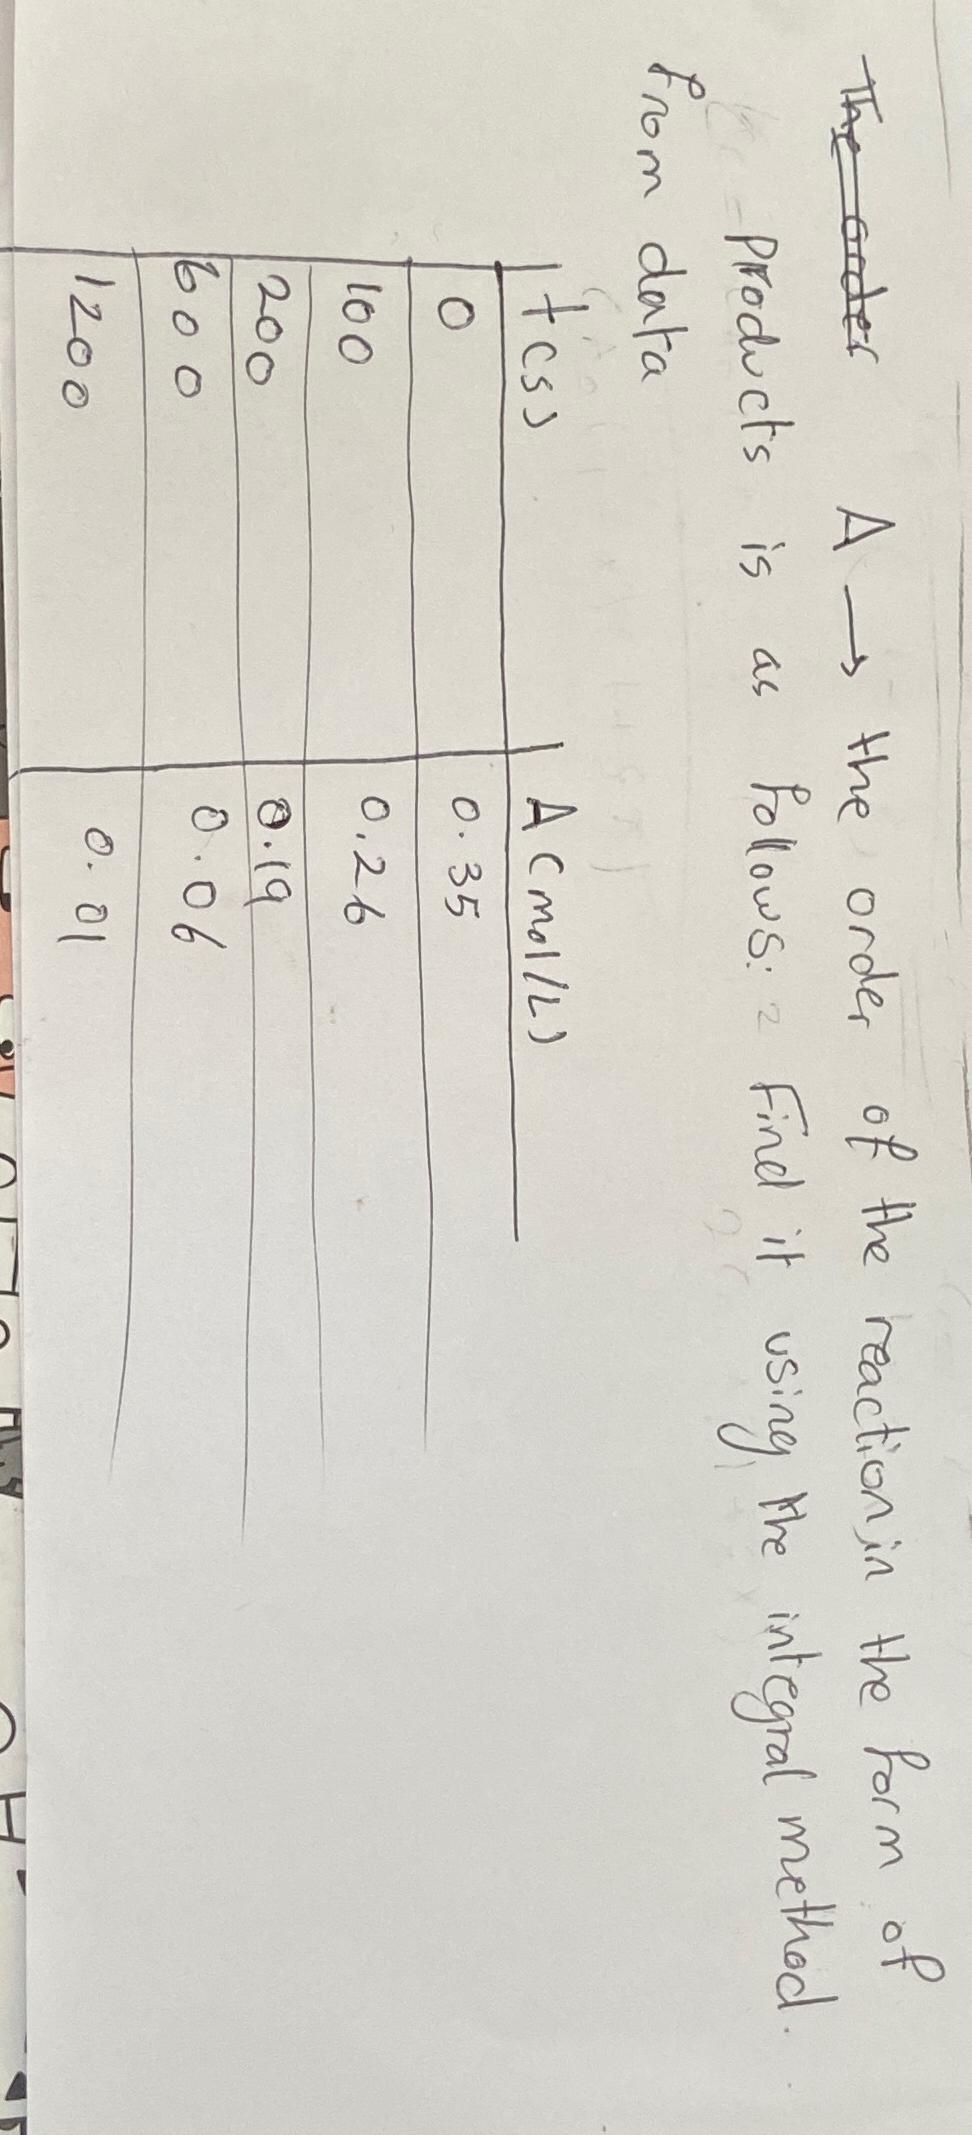 The order A → the order of the reaction, in the form of
products is as follows: = Find it using the integral method.
from data
t (s) A (mol/L)
0 0.35
100 0.26
200 0.19
600 0.06
1200 0.01